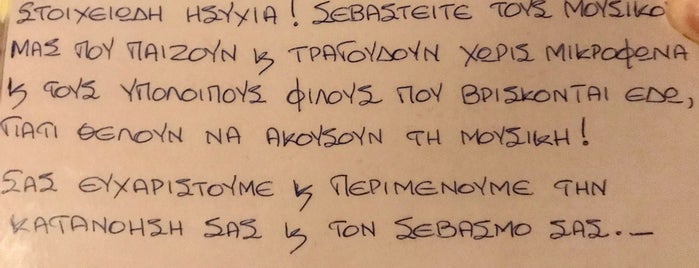 ΣΤΟΙΧΕΙΩΔΗ ΗΣΥΧΙΑ! ΣΕΒΑΣΤΕΙΤΕ ΤΟΥΣ ΜΟΥΣΙΚΟ
ΜΑΣ ΠΟΥ ΠΑΙΖΟΥΝ ϗ ΤΡΑΓΟΥΔΟΥΝ ΧΩΡΙΣ ΜΙΚΡΟΦΩΝΑ
ϗ ΤΟΥΣ ΥΠΟΛΟΙΠΟΥΣ ΦΙΛΟΥΣ ΠΟΥ ΒΡΙΣΚΟΝΤΑΙ ΕΔΩ,
ΓΙΑΤΙ ΘΕΛΟΥΝ ΝΑ ΑΚΟΥΣΟΥΝ ΤΗ ΜΟΥΣΙΚΗ!
ΣΑΣ ΕΥΧΑΡΙΣΤΟΥΜΕ ϗ ΠΕΡΙΜΕΝΟΥΜΕ ΤΗΝ
ΚΑΤΑΝΟΗΣΗ ΣΑΣ ϗ ΤΟΝ ΣΕΒΑΣΜΟ ΣΑΣ.–